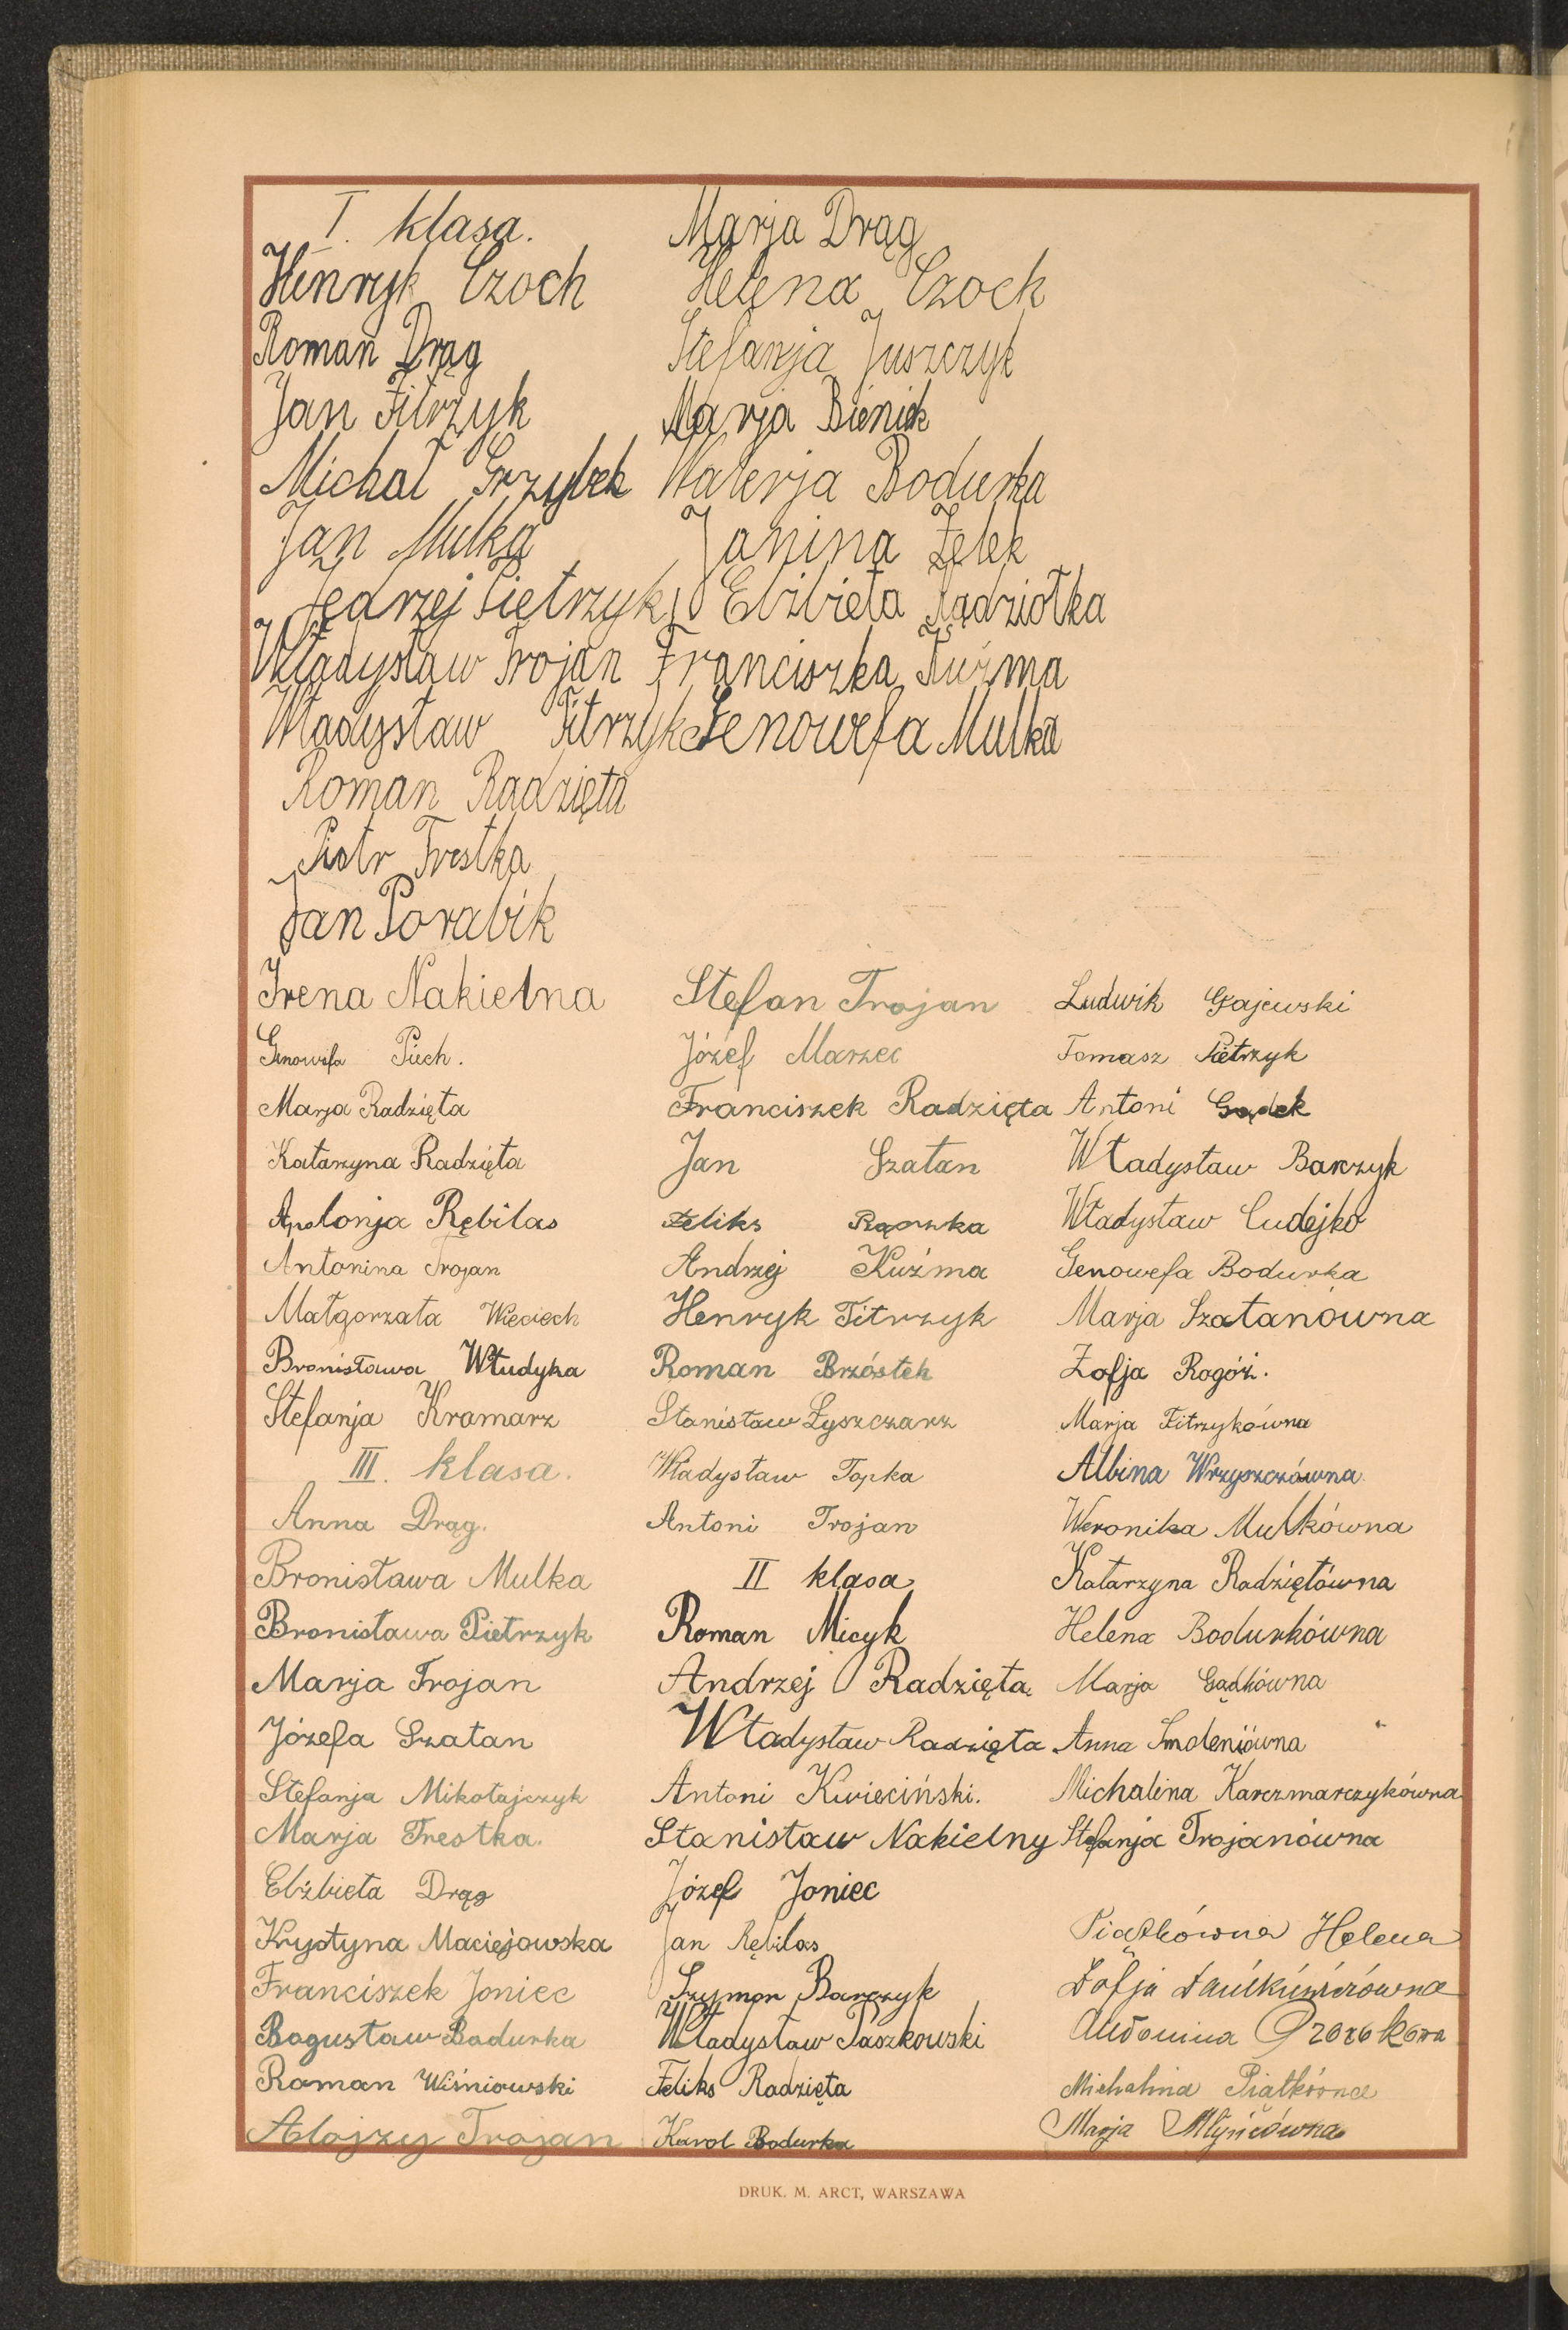 I. klasa.
Henryk Czoch
Roman Drąg
Jan Fitrzyk
Michał Grzybek
Jan Mulka
Jędrzej Pietrzyk
Władysław Trojan
Władysław Fitrzyk
Roman Radzięta
Piotr Trestka
Jan Porabik
Marja Drąg
Helena Czoch
Stefanja Juszczyk
Marja Bieniek
Walerja Bodurka
Janina Żelek
Elżbieta Kądziołka
Franciszka Kuźma
Genowefa Mulka
Irena Nakielna
Genowefa Piech.
Marja Radzięta
Katarzyna Radzięta
Apolonja Rębilas
Antonina Trojan
Małgorzata Wieciech
Bronisława Włudyka
Stefanja Kramarz
III. klasa.
Anna Drąg.
Bronisława Mulka
Bronisława Pietrzyk
Marja Trojan
Józefa Szatan
Stefanja Mikołajczyk
Marja Trestka.
Elżbieta Drąg
Krystyna Maciejowska
Franciszek Joniec
Bogusław Bodurka
Roman Wiśniowski
Alojzy Trojan
Stefan Trojan
Józef Marzec
Franciszek Radzięta
Jan Szatan
Feliks Rączka
Andrzej Kuźma
Henryk Fitrzyk
Roman Brzóstek
Stanisław Łyszczarz
Władysław Topka
Antoni Trojan
II klasa
Roman Micyk
Andrzej Radzięta
Władysław Radzięta
Antoni Kwieciński.
Stanisław Nakielny
Józef Joniec
Jan Rębilas
Szymon Barczyk
Władysław Paszkowski
Feliks Radzięta
Karol Bodurka
Ludwik Gajewski
Tomasz Pietrzyk
Antoni Gądek
Władysław Barczyk
Władysław Cudejko
Genowefa Bodurka
Marja Szatanówna
Zofja Rogóż.
Marja Fitrzykówna
Albina Wrzyszczówna
Weronika Mulkówna
Katarzyna Radziętówna
Helena Bodurkówna
Marja Gądkówna
Anna Smoleniówna
Michalina Karczmarczykówna
Stefanja Trojanówna
Piątkówna Helena
Zofja
Michalina Piątkówna
Marja Młyńcówna
DRUK. M. ARCT, WARSZAWA